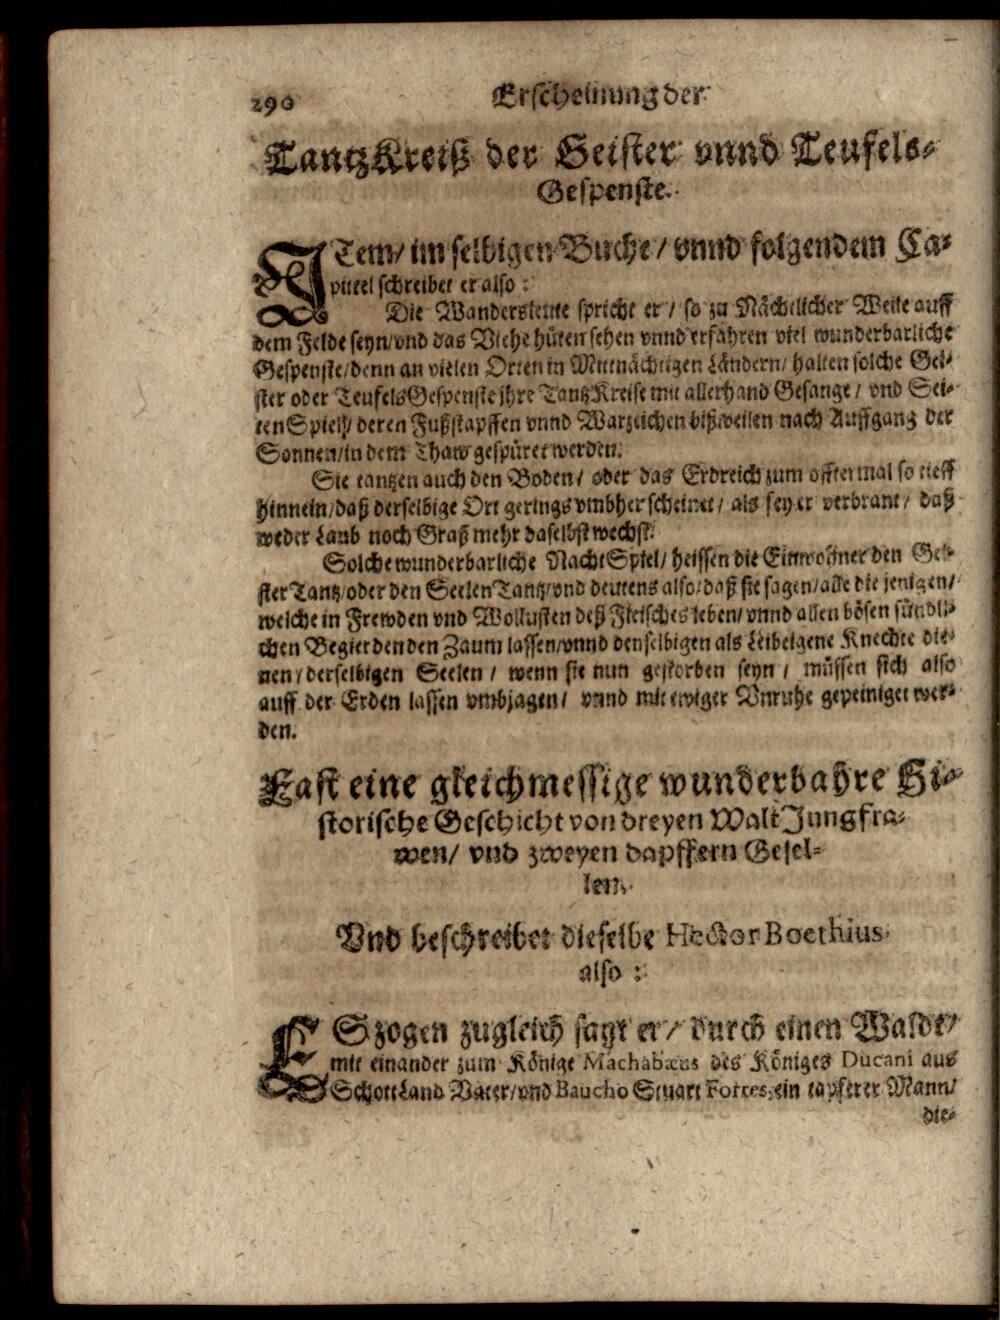 290 Erscheinung der
TantzKreiß der Geister vnnd Teufels-
Gespenste.
ITem/ im selbigen Buche/ vnnd folgendem Ca-
pittel schreibet er also:
Die Wandersleute spricht er/ so zu Nächtlicher Weile auff
dem Felde seyn/vnd das Viehe hüten sehen vnnd erfahren viel wunderbarliche
Gespenste/denn an vielen Orten in Mitnächtigen Ländern/ halten solche Gei-
ster oder TeufelsGespenste jhre TantzKreise mit allerhand Gesange/ vnd Sei-
tenSpiell/ deren Fußstapffen vnnd Warzeichen bißweilen nach Auffgang der
Sonnen/in dem Thaw gespüret werden.
Sie tantzen auch den Boden/ oder das Erdreich zum offtermal so tieff
hinnein/daß derselbige Ort gerings vmbher scheinet/ als sey er verbrant/ daß
weder Laub noch Graß mehr daselbst wechst.
Solche wunderbarliche NachtSpiel/ heissen die Einwohner den Gei-
ster Tantz/oder den SeelenTantz/vnd deutens also/daß sie sagen/alle die jenigen/
welche in Frewden vnd Wollusten deß Fleisches leben/vnnd allen bösen sündli-
chen Begierden den Zaum lassen/vnnd denselbigen als Leibeigene Knechte die-
nen/derselbigen Seelen/ wenn sie nun gestorben seyn/ müssen sich also
auff der Erden lassen vmbjagen/ vnnd mit ewiger Vnruhe gepeiniget wer-
den.
Fast eine gleichmessige wunderbahre Hi-
storische Geschicht von dreyen WaltJungfra-
wen/ vnd zweyen dapffern Gesel-
len.
Vnd beschreibet dieselbe Hector Boethius
also:
ES zogen zugleich sagt er/ durch einen Walde/
mit einander zum Könige Machabæus des Königes Ducani aus
SchottLand Vater/vnd Baucho Stuart Forres, ein tapferer Mann/
die-